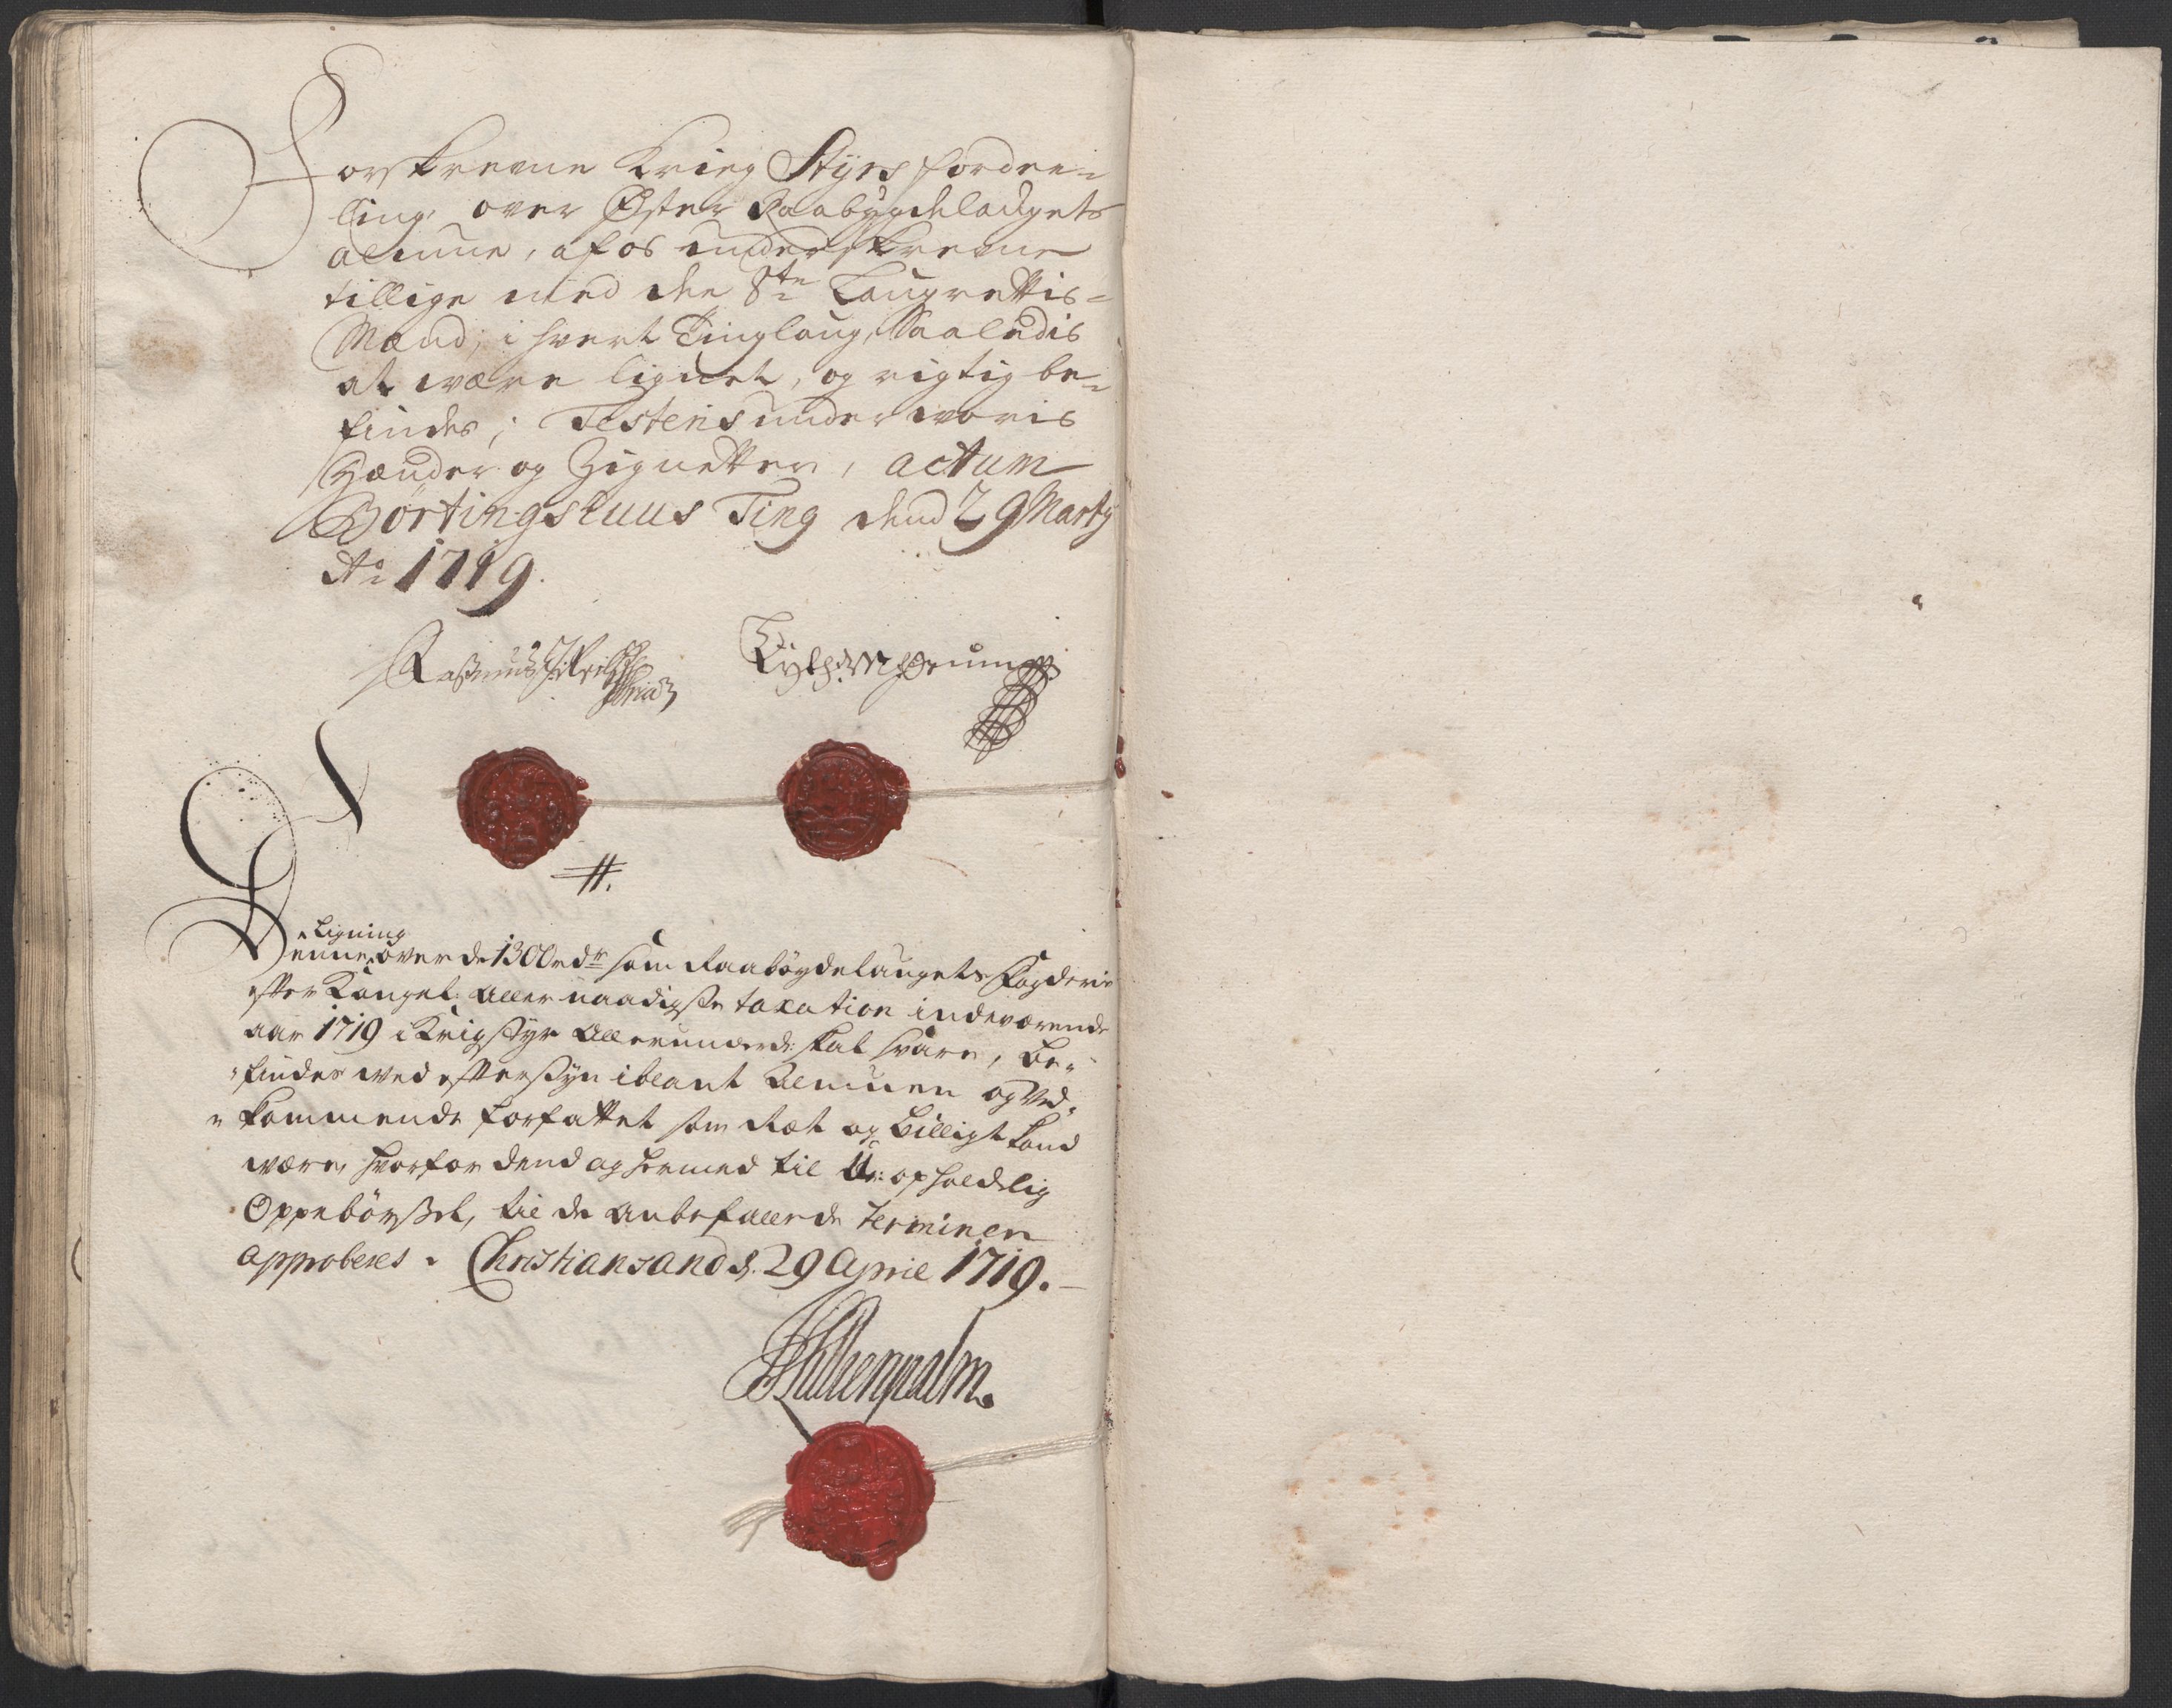 Forskrevne Krieg Styrs fordee-
ling, over Øster Raabygdelaugets
almue, af os underskrevne
tillige med de 8te Laugrettis-
Mænd, i hvert Tinglaug, Saaledis
at være lignet, og rigtig be-
findes; Testeris under voris
Hænder og Zignetter, actum
Børtingstuus Ting dend 29 Marty
Ao 1719.
Denne Ligning over de 1300 rdr som Raabøydelaugets Fogderie
efter Kongel: Aller naadigste taxation indeværende
aar 1719 i Krigstyr Allerunderd: skal svare, be-
findes ved efftersyn iblant Almuen og Ved-
kommende forfattet som Ret og billigt kand
være, hvorfor dend og hermed til Uopholdelig
Oppebørsel, til de anbefallede Terminer
approberes. Christiansand d. 29 April 1719.